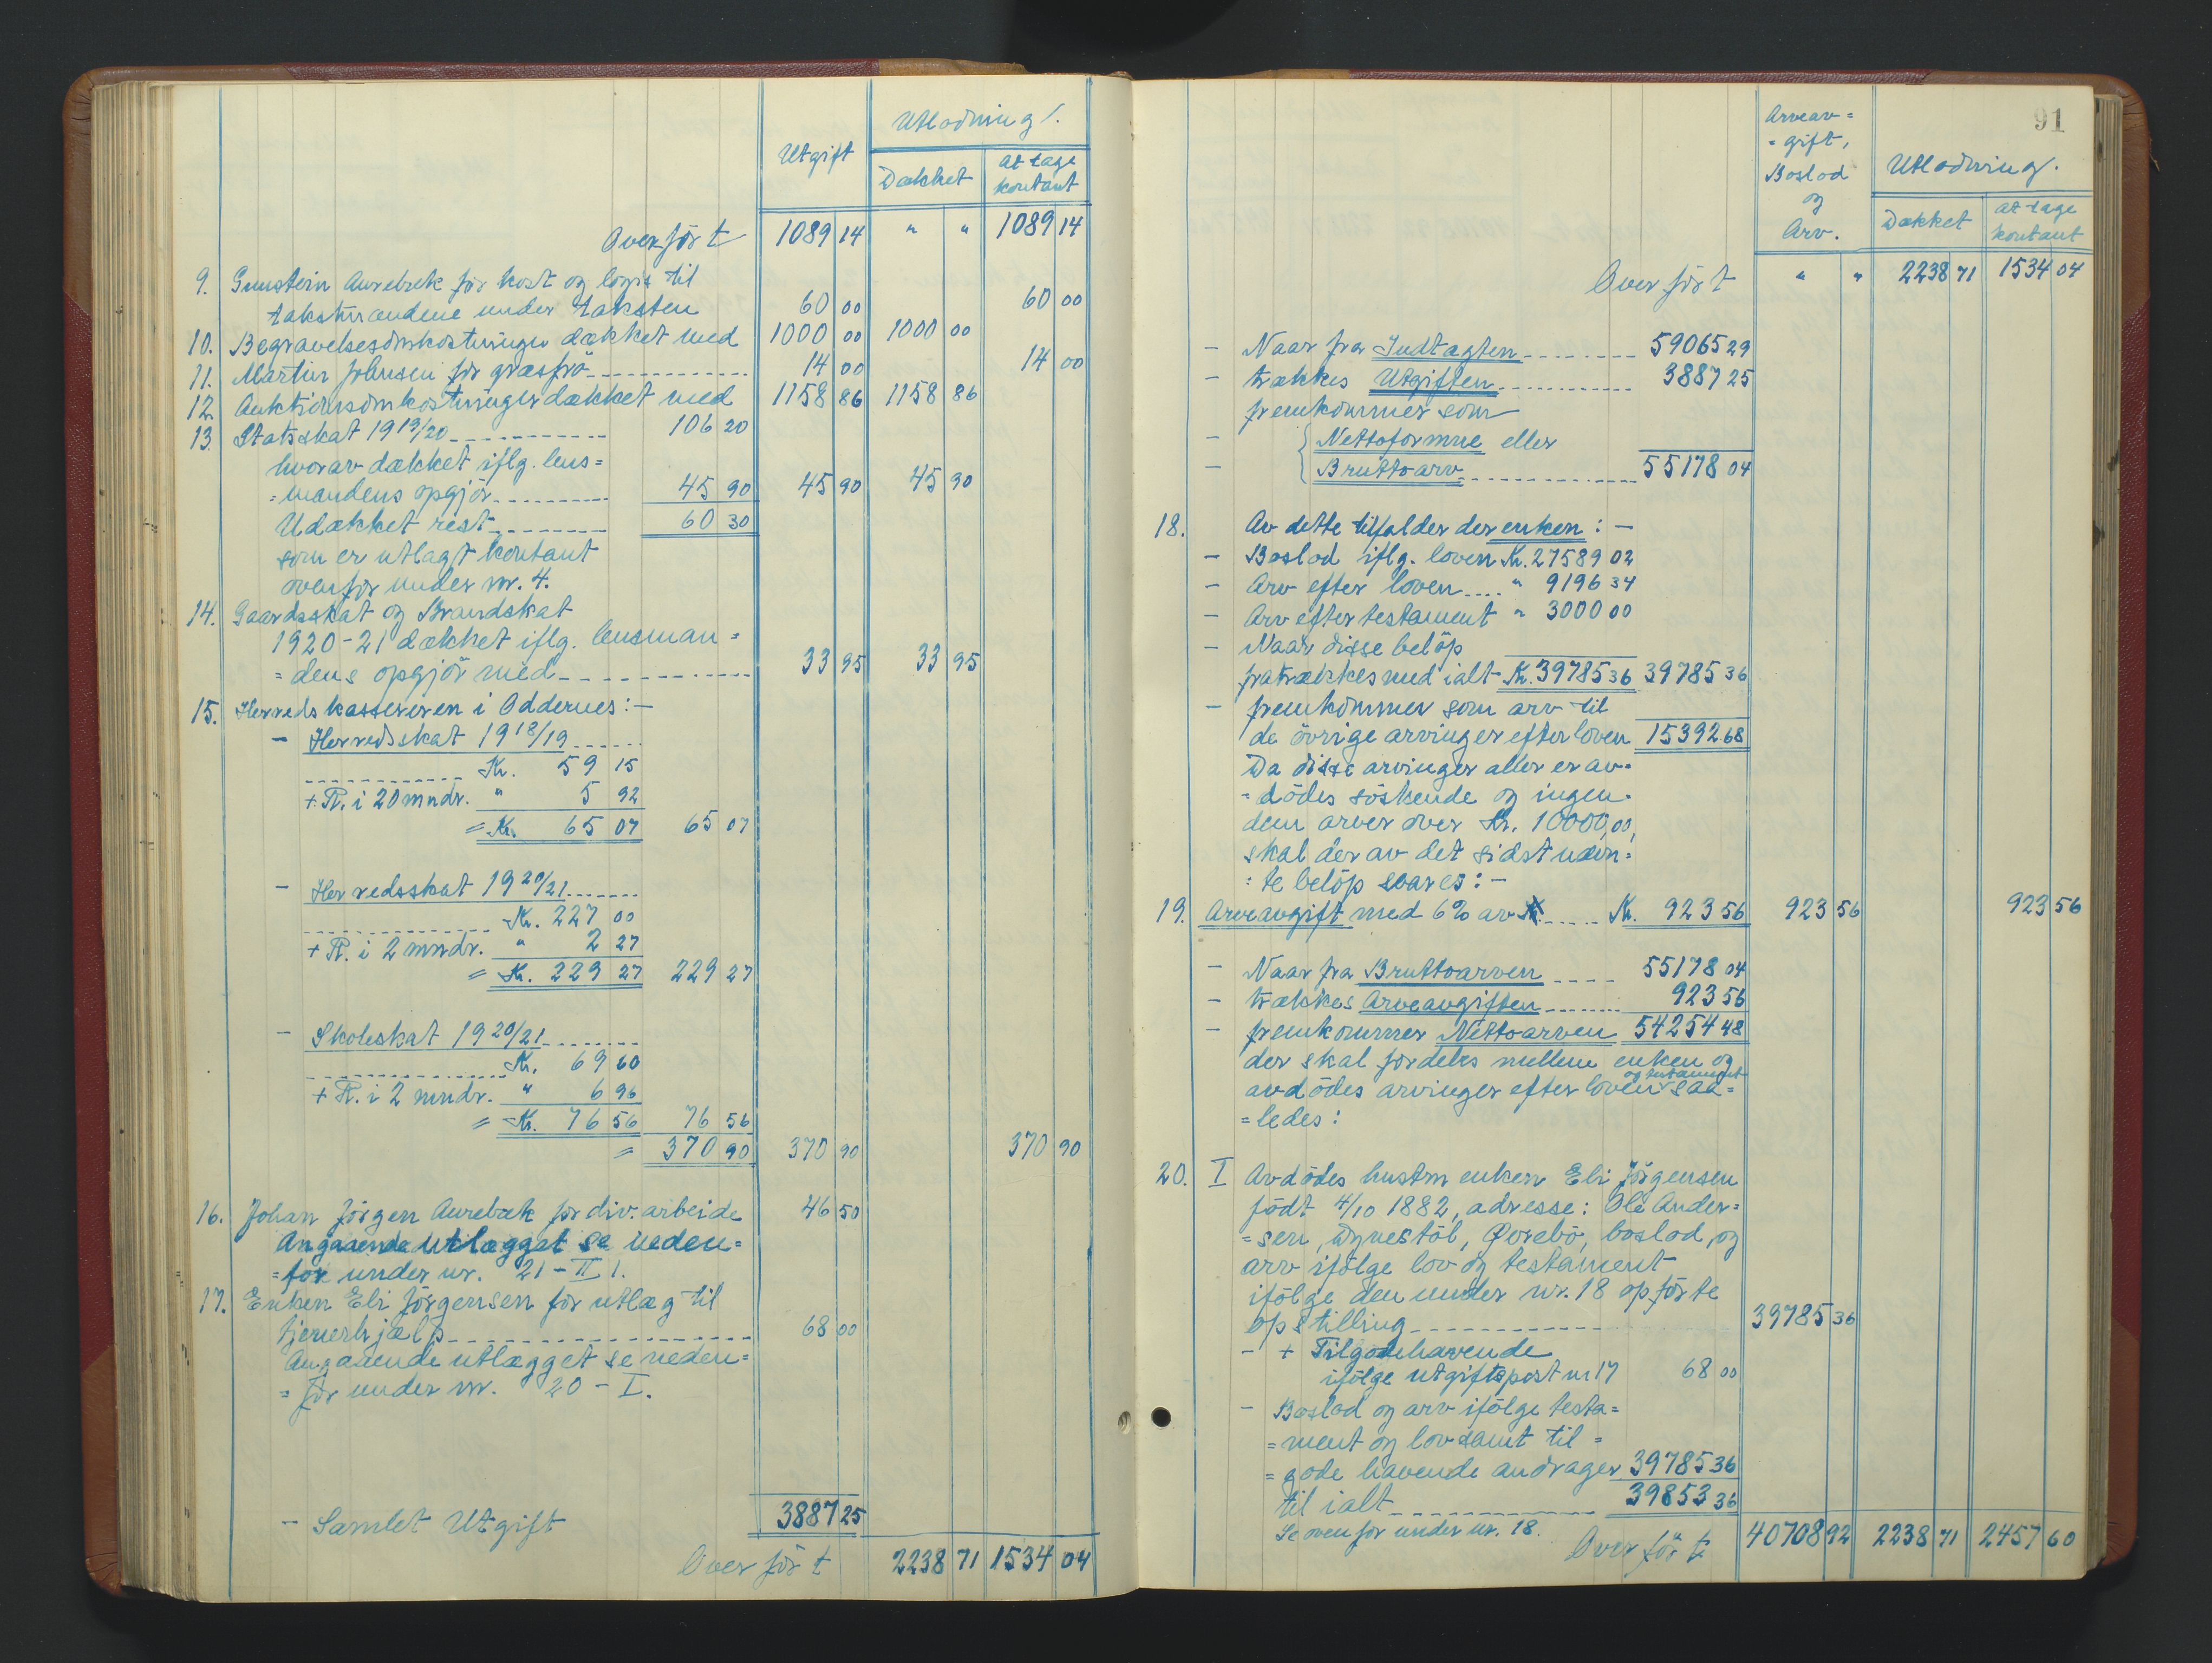 Utlodning.
Utgift
Dækket
At tage kontant
Overført 1089 14 " " 1089 14
9. Gunstein Aurebæk for kost og logis til
takstmændene under taksten 60 00 60 00
10. Begravelsesomkostninger dækket med 1000 00 1000 00
11. Martin Johnsen for græsfrö 14 00 14 00
12. Auktionsomkostninger dækket med 1158 86 1158 86
13. Statsskat 1919/20 106 20
hvorav dækket iflg. lens=
=mandens opgjör 45 90 45 90 45 90
Udækket rest 60 30
som er utlagt kontant
ovenfor under nr. 4.
14. Gaardsskat og Brandskat
1920-21 dækket iflg. lensman=
=dens opgjör med 33 95 33 95
15. Herredskassereren i Oddernes:-
- Herredsskat 1918/19
Kr. 59 15
+ R. i 20 mndr. " 5 92
= Kr. 65 07 65 07
- Herredsskat 1920/21
Kr. 227 00
+ R. i 2 mndr. " 2 27
= Kr. 229 27 229 27
- Skoleskat 1920/21
Kr. 69 60
+ R. i 2 mndr. " 6 96
= Kr. 76 56 76 56
= 370 90 370 90 370 90
16. Johan Jörgen Aurebæk for div. arbeide 46 50
Angaaende utlægget se neden=
=for under nr. 21-II 1.
17. Enken Eli Jörgensen for utlæg til
tjenerhjælp 68 00
Angaaende utlægget se neden=
=for under nr. 20-I.
- Samlet Utgift 3887 25
Overfört 2238 71 1534 04
91
Arveav=
=gift,
Boslod
og
Arv.
Utlodning.
Dækket
At tage
kontant
Overfört " " 2238 71 1534 04
- Naar fra Indtægten 59065 29
- trækkes Utgiften 3887 25
fremkommer som
- Nettoformue eller
- Bruttoarv 55178 04
18. Av dette tilfalder der enken:-
- Boslod iflg. loven Kr. 27589 02
- Arv efter loven " 9196 34
- Arv efter testament " 3000 00
- Naar disse belöp
fratrækkes med ialt Kr. 39785 36 39785 36
- fremkommer som arv til
de övrige arvinger efter loven 15392 68
Da disse arvinger aller er av=
=dödes söskende og ingen
dem arver over Kr. 10000,00,
skal der av det sidst nævn=
=te belöp svares:-
19. Arveavgift med 6% av Kr. 923 56 923 56 923 56
- Naar fra Bruttoarven 55178 04
- trækkes Arveavgiften 923 56
- fremkommer Nettoarven 54254 48
der skal fordeles mellem enken og
og testament
avdödes arvinger efter loven saa=
=ledes:
20. I Avdödes hustru enken Eli Jörgensen
födt 4/10 1882, adresse: Ole Ander=
=sen, Dynestöl, Øvrebö, boslod, og
arv ifölge lov og testament
ifölge den under nr. 18 opförte
opstilling 39785 36
- + Tilgodehavende
ifölge utgiftspost nr 17 68 00
- Boslod og arv ifölge testa=
=ment og lov samt til=
=gode havende andrager 39785 36
til ialt 39853 36
Se ovenfor under nr. 18.
Overfört 40708 92 2238 71 2457 60